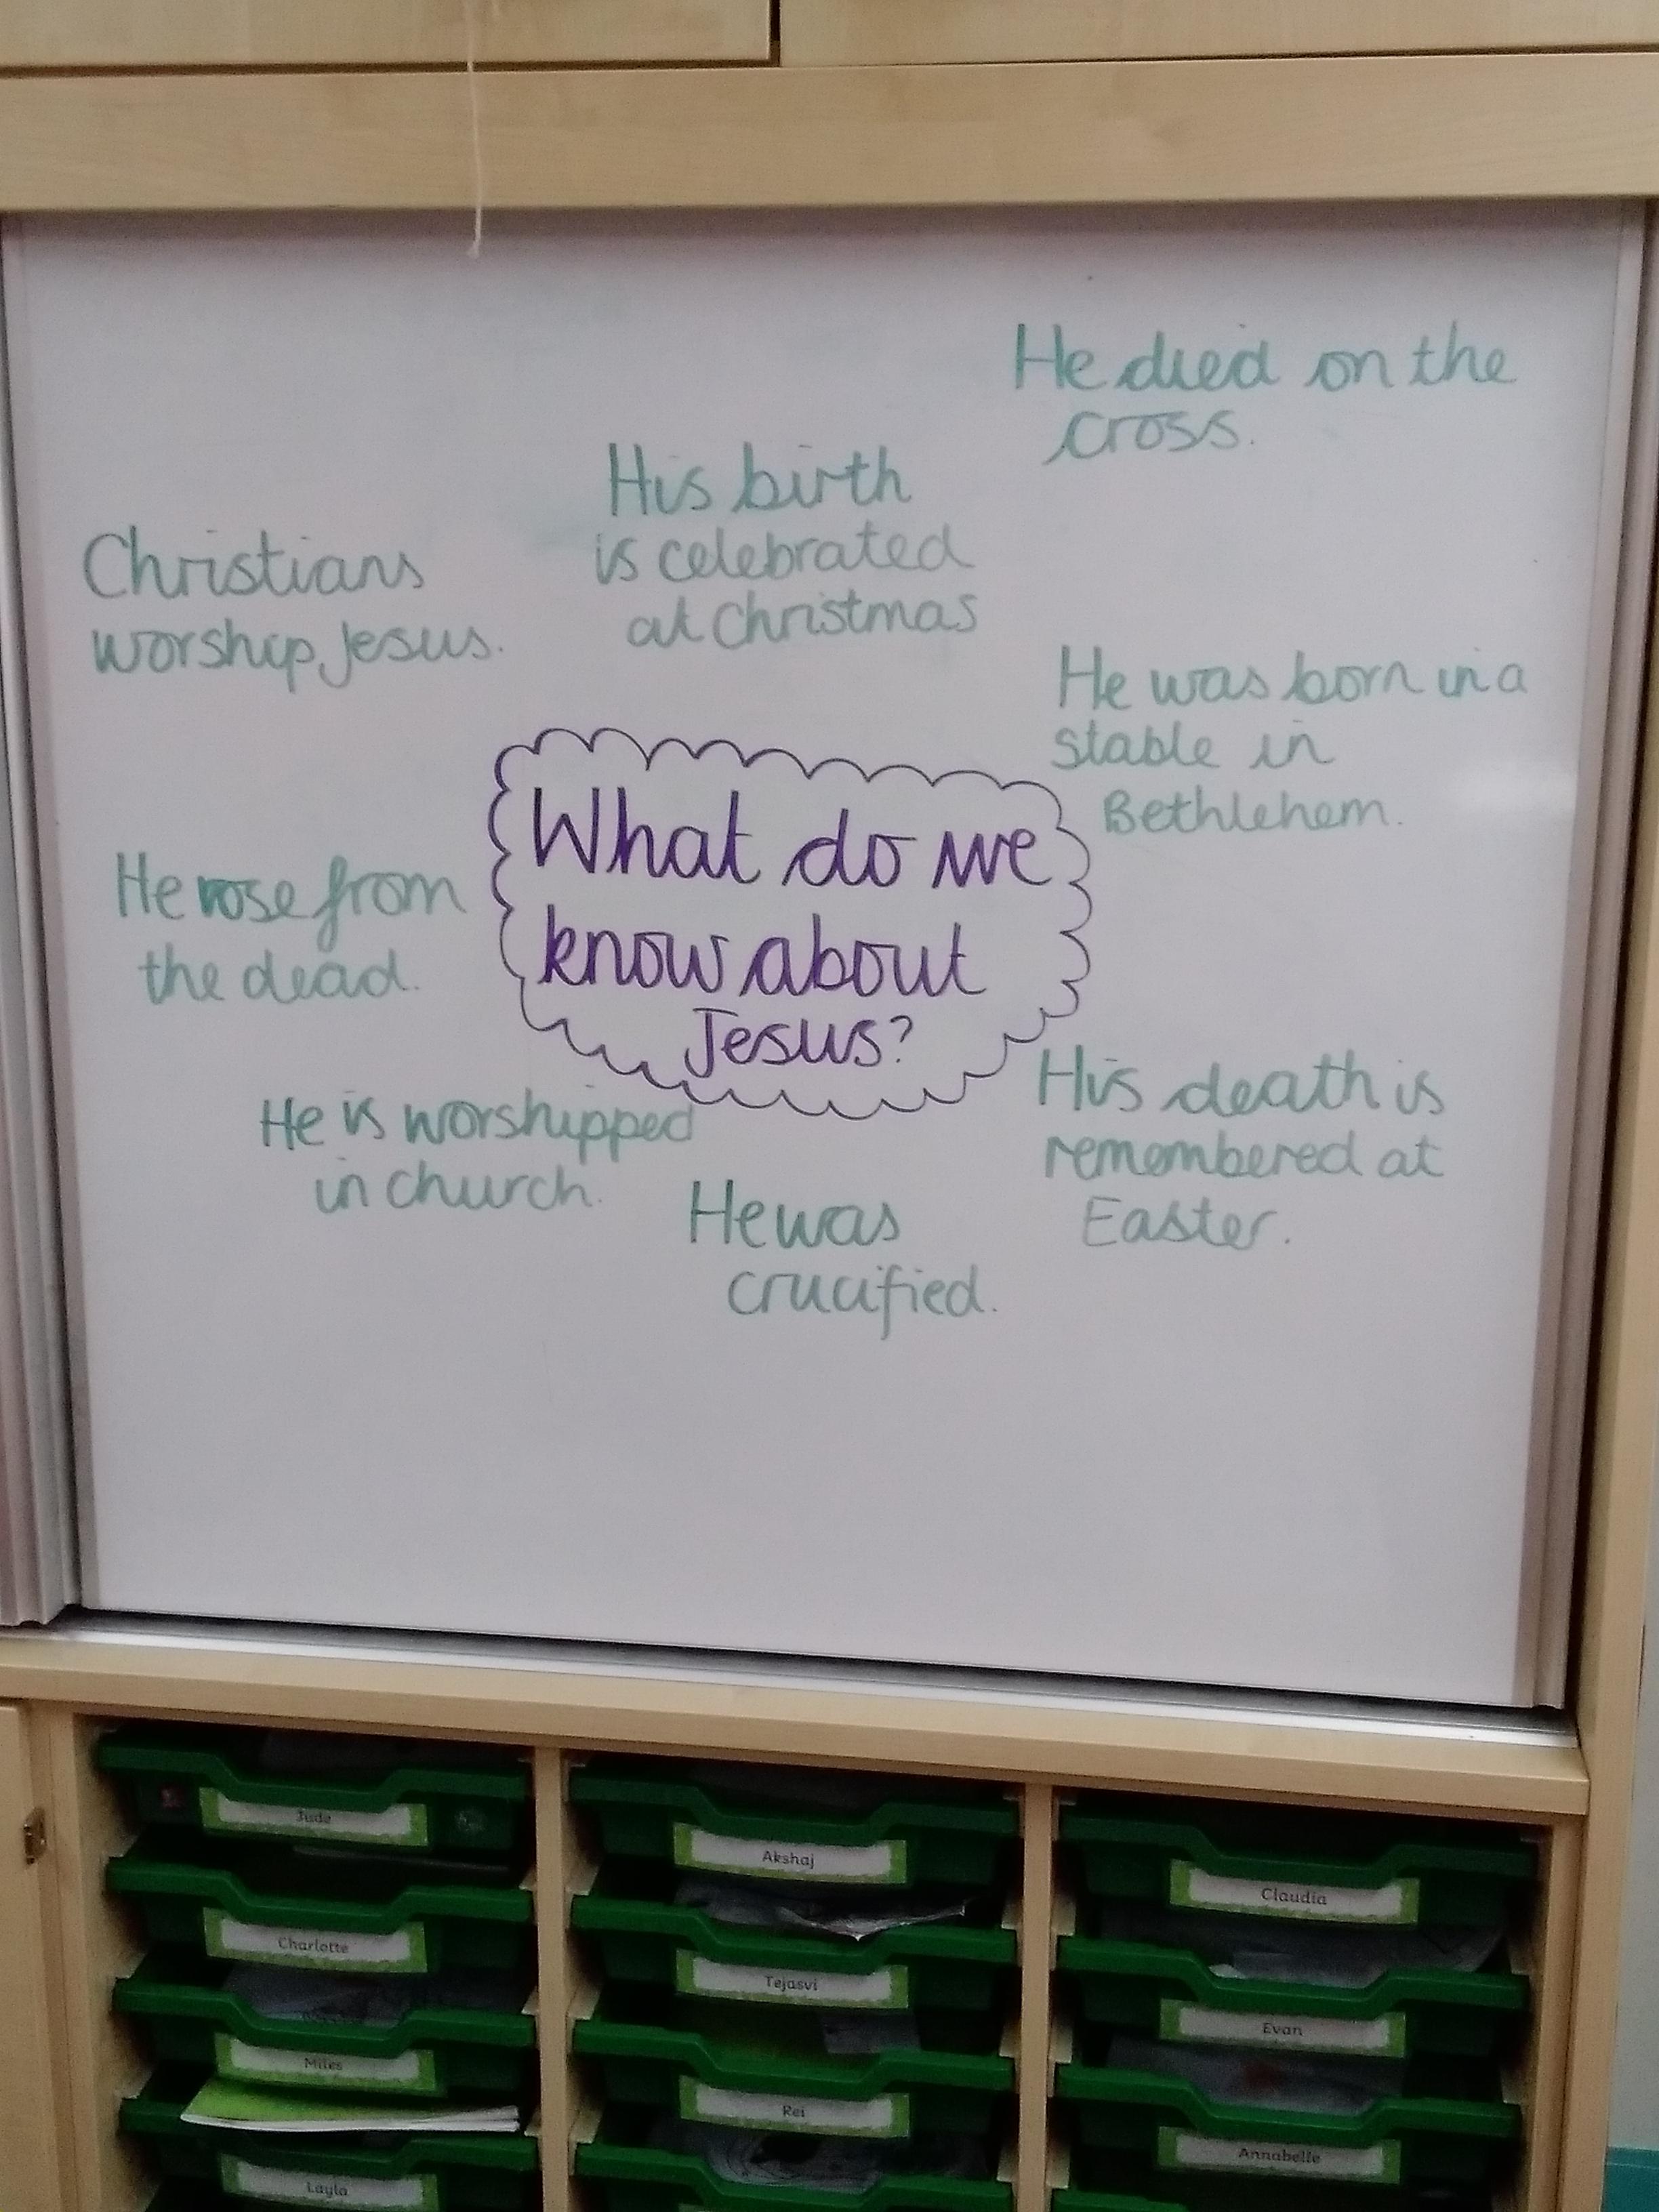 He died on the
cross.
His birth
is celebrated
at Christmas
Christians
worship Jesus.
He was born in a
stable in
Bethlehem.
What do we
know about
Jesus?
He rose from
the dead.
His death is
remembered at
Easter.
He is worshipped
in church.
He was
crucified.
Jude
Akshaj
Claudia
Charlotte
Tejasvi
Evan
Miles
Rei
Annabelle
Layla